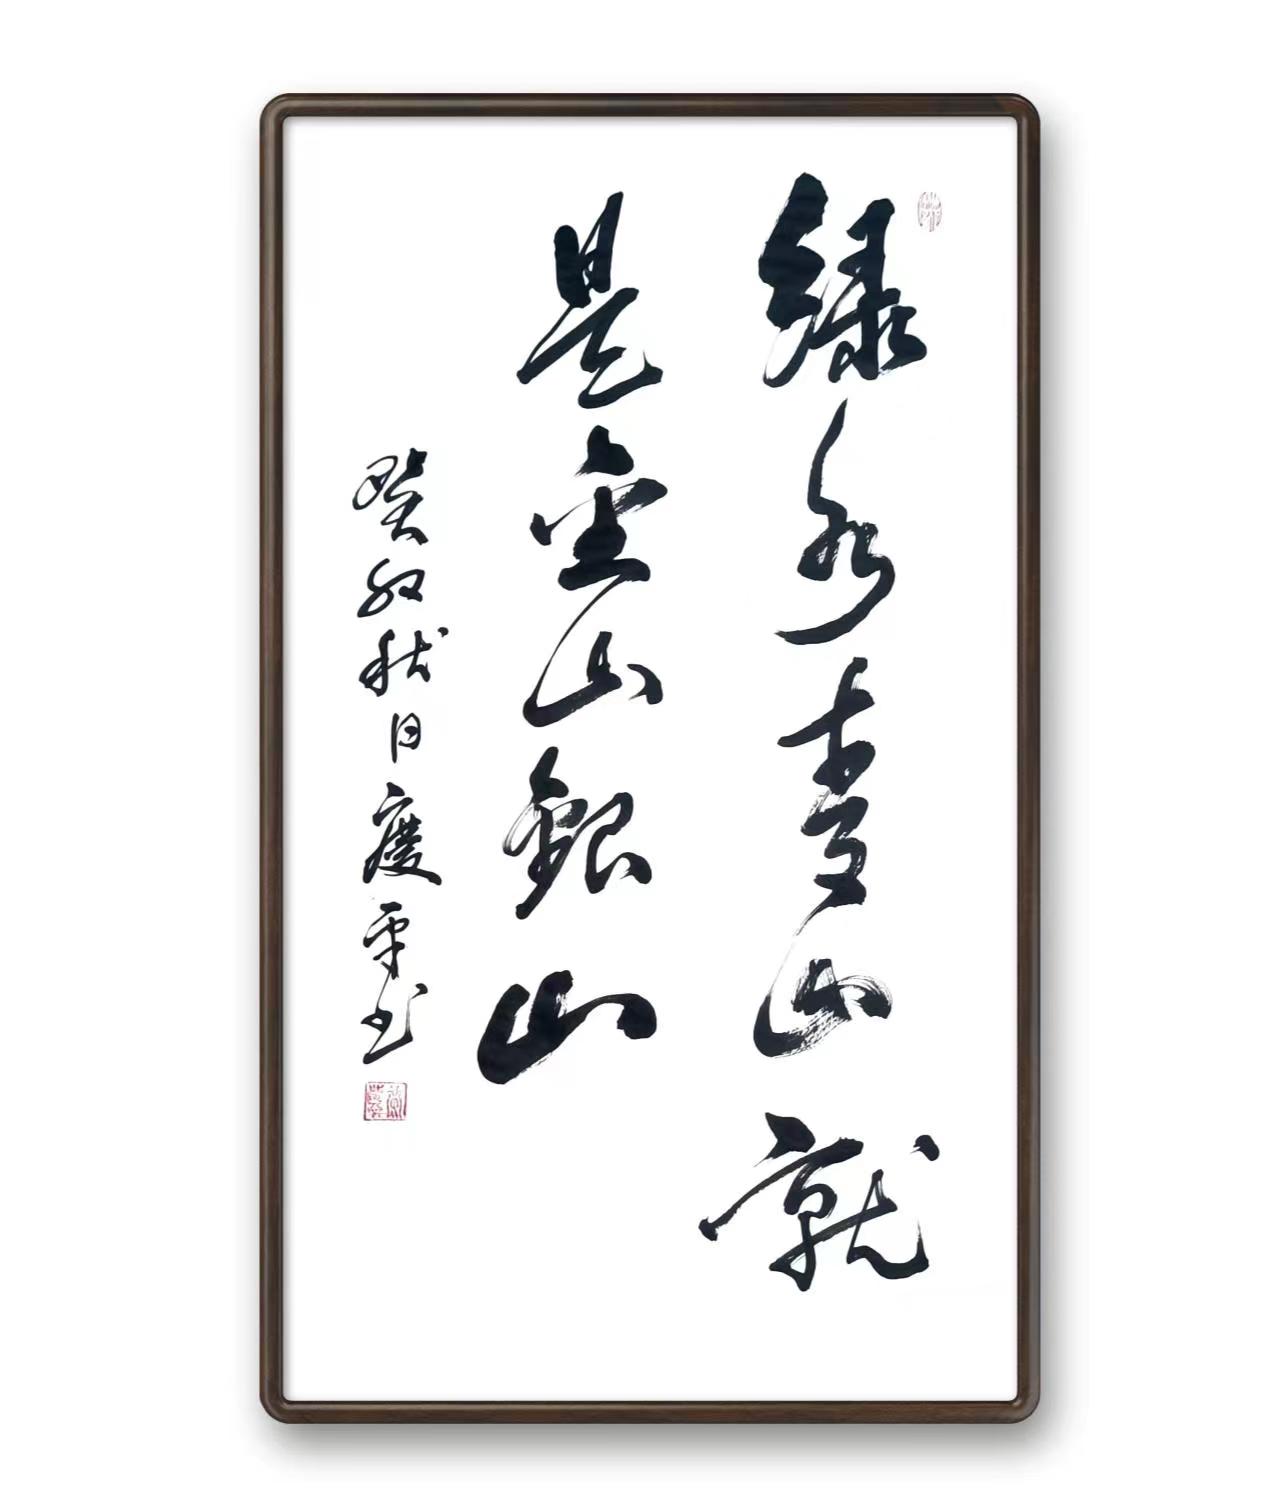 绿水青山就
是金山银山
癸卯秋日庆平书